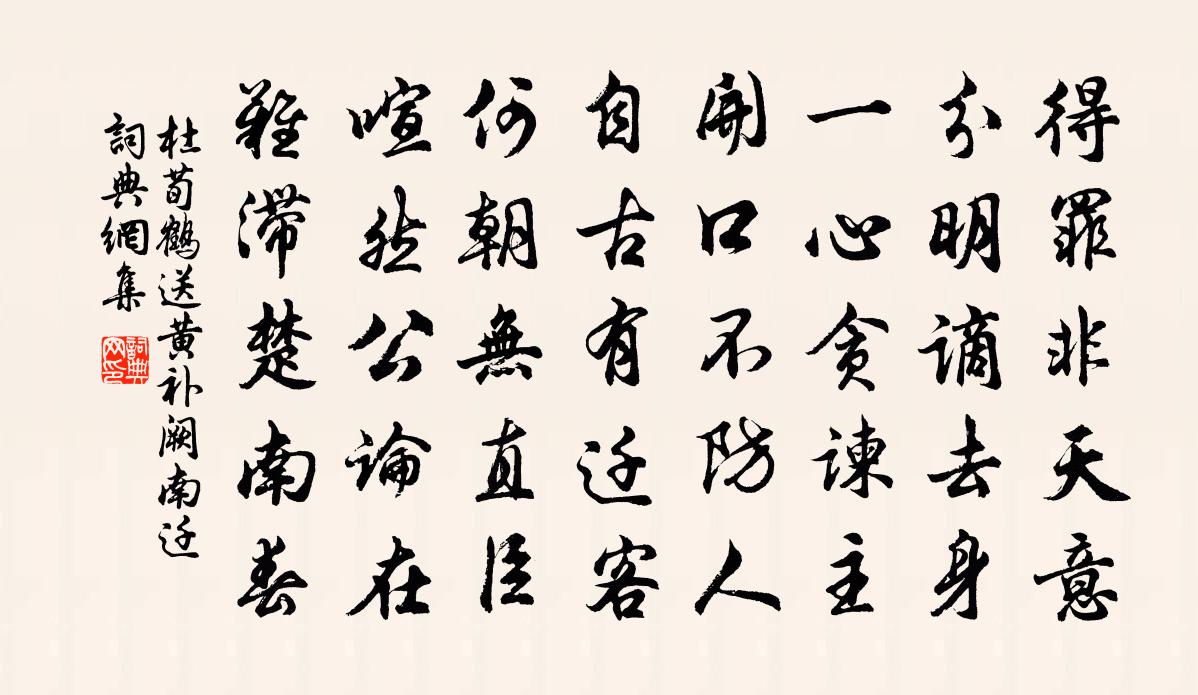 得罪非天意
分明謫去身
一心貪諫主
開口不防人
自古有迁客
何朝無直臣
喧然公論在
難滞楚南春
杜荀鶴送黄补阙南迁
詞典網集
詞典网印